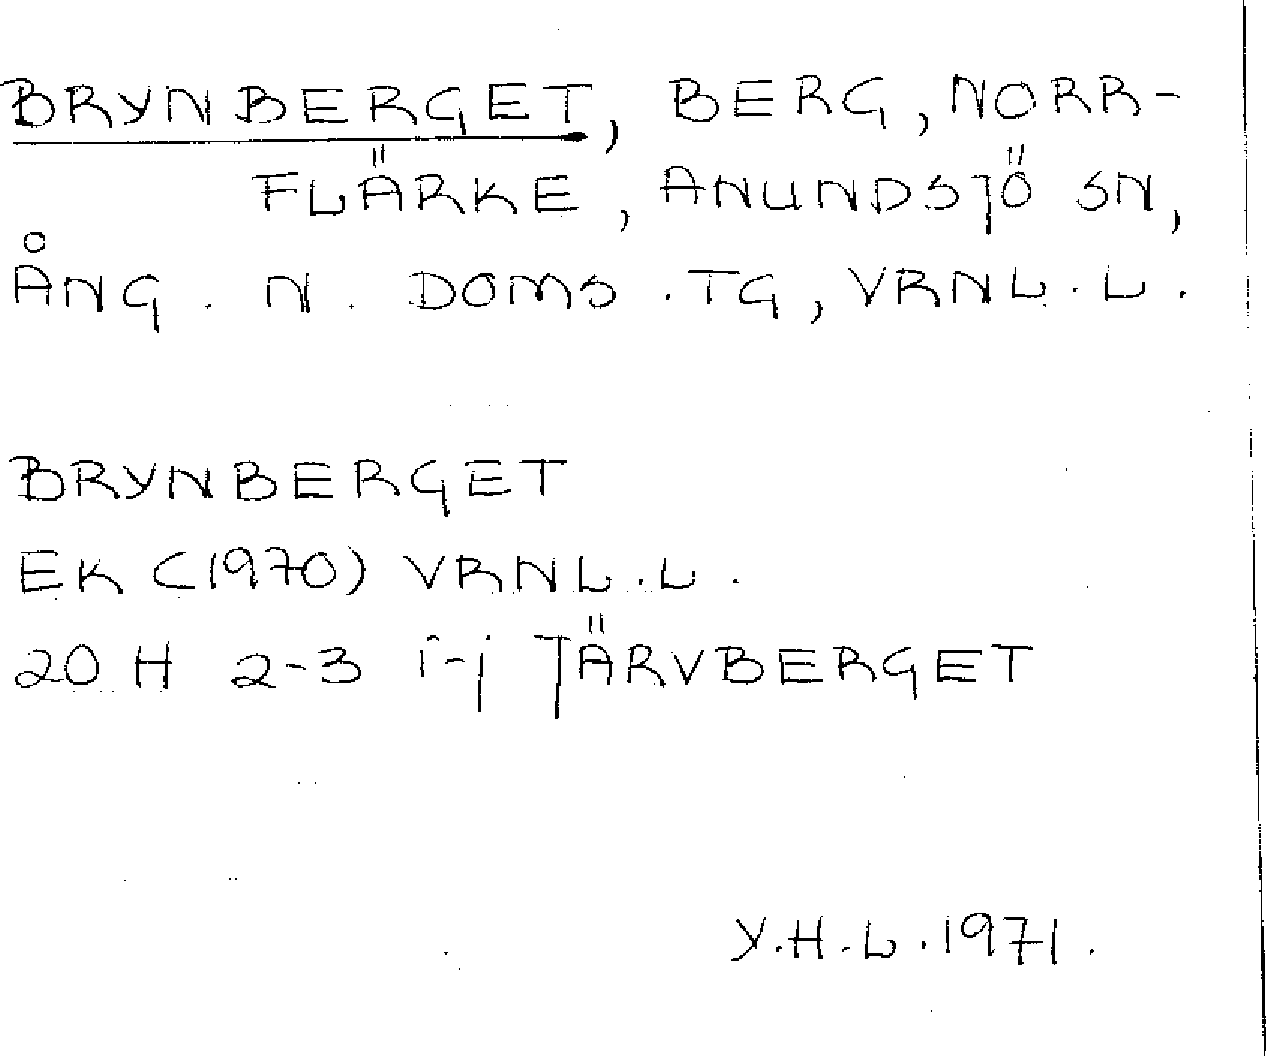 BRYNBERGET, BERG, NORR-
FLÄRKE, ANUNDSJÖ SN,
ÅNG. N. DOMS.TG, VRNL.L.
BRYNBERGET
EK (1970) VRNL.L.
20 H 2-3 i-j TÄRVBERGET
Y.H.L.1971.